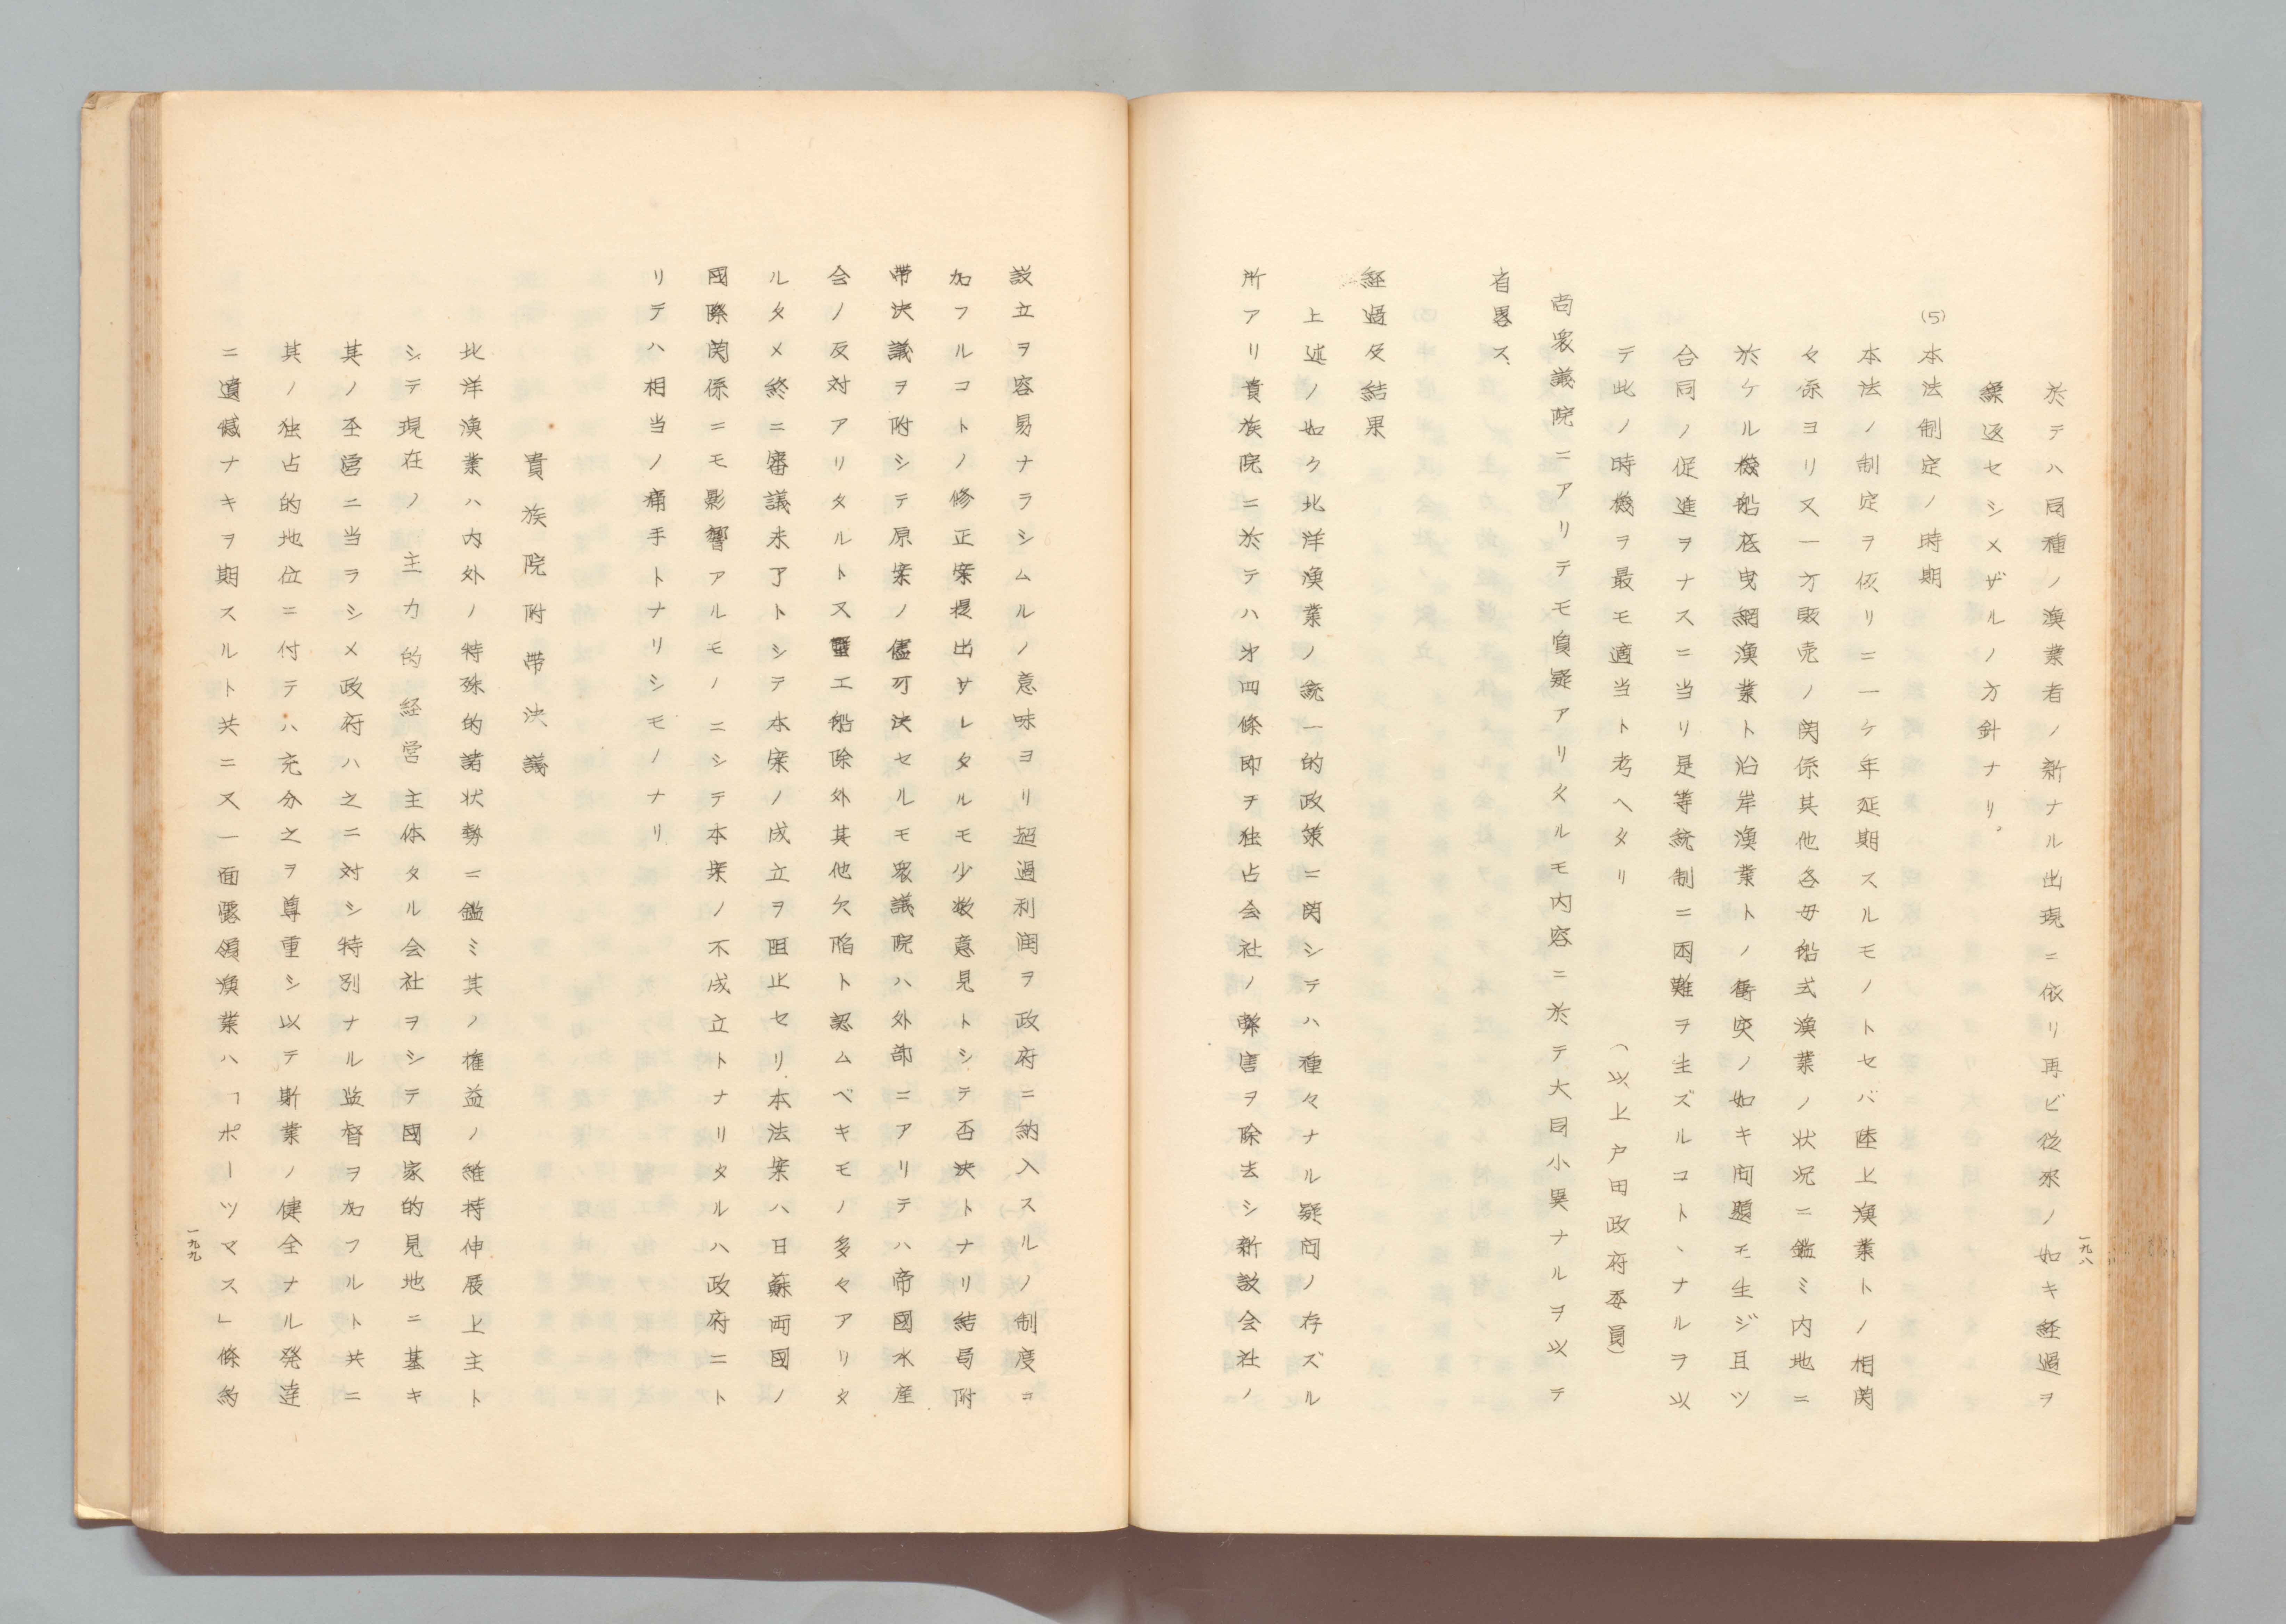 於テハ同種ノ漁業者ノ新ナル出現ニ依リ再ビ従来ノ如キ経過ヲ
繰返セシメザルノ方針ナリ。
(5)本法制定ノ時期
本法ノ制定ヲ仮リニ一ケ年延期スルモノトセバ陸上漁業トノ相関
々係ヨリ又一方販売ノ関係其他各母船式漁業ノ状況ニ鑑ミ内地ニ
於ケル機船底曳網漁業ト沿岸漁業トノ衝突ノ如キ問題モ生ジ且ツ
合同ノ促進ヲナスニ当リ是等統制ニ困難ヲ生ズルコトヽナルヲ以
テ此ノ時機ヲ最モ適当ト考ヘタリ
(以上戸田政府委員)
尚衆議院ニアリテモ質疑アリタルモ内容ニ於テ大同小異ナルヲ以テ
省畧ス、
経過及結果
上述ノ如ク北洋漁業ノ統一的政策ニ関シテハ種々ナル疑問ノ存ズル
所アリ貴族院ニ於テハ才四條即チ独占会社ノ弊害ヲ除去シ新設会社ノ
一九八
設立ヲ容易ナラシムルノ意味ヨリ超過利潤ヲ政府ニ納入スルノ制度ヲ
加フルコトノ修正案提出サレタルモ少数意見トシテ否決トナリ結局附
帯決議ヲ附シテ原案ノ儘可決セルモ衆議院ハ外部ニアリテハ帝國水産
会ノ反対アリタルト又蟹工船除外其他欠陥ト認ムベキモノ多々アリタ
ルタメ終ニ審議未了トシテ本案ノ成立ヲ阻止セリ本法案ハ日蘇両國ノ
國際関係ニモ影響アルモノニシテ本案ノ不成立トナリタルハ政府ニト
リテハ相当ノ痛手トナリシモノナリ
貴族院附帯決議
北洋漁業ハ内外ノ特殊的諸状勢ニ鑑ミ其ノ権益ノ維持伸展上主ト
シテ現在ノ主力的経営主体タル会社ヲシテ國家的見地ニ基キ
其ノ至営ニ当ラシメ政府ハ之ニ対シ特別ナル監督ヲ加フルト共ニ
其ノ独占的地位ニ付テハ充分之ヲ尊重シ以テ斯業ノ健全ナル発達
ニ遺憾ナキヲ期スルト共ニ又一面露領漁業ハ「ポーツマス」條約
一九九